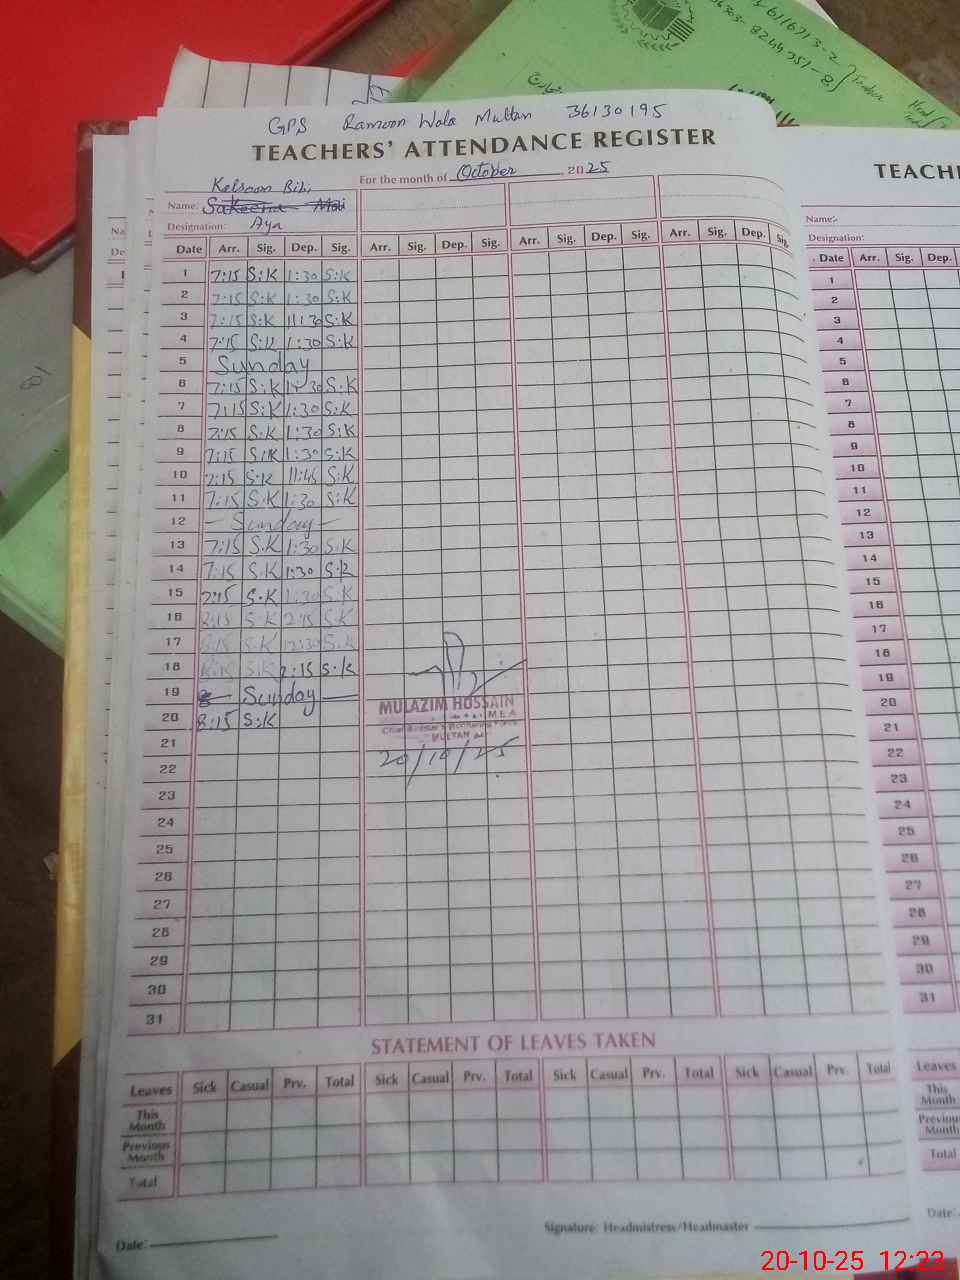 6116713-2
8244351-8
GPS Ramoon Wala Multan 36130195
TEACHERS' ATTENDANCE REGISTER
For the month of October, 2025
Kelsoon Bibi
Name: Sakeena Mai
Designation: Aya
Date Arr. Sig. Dep. Sig. Arr. Sig. Dep. Sig. Arr. Sig. Dep. Sig. Arr. Sig. Dep. Sig.
1 7:15 S:K 1:30 S:K
2 7:15 S:K 1:30 S:K
3 7:15 S:K 11:30 S:K
4 7:15 S:K 1:30 S:K
5 Sunday
6 7:15 S:K 1:30 S:K
7 7:15 S:K 1:30 S:K
8 7:15 S:K 1:30 S:K
9 7:15 S:K 1:30 S:K
10 7:15 S:K 11:45 S:K
11 7:15 S:K 1:30 S:K
12 — Sunday —
13 7:15 S.K 1:30 S.K
14 7:15 S.K 1:30 S.K
15 7:15 S.K 1:30 S.K
16 8:15 S.K 2:15 S.K
17 8:15 S.K 12:30 S.K
18 8:15 S.K 2:15 S.K
19 — Sunday —
20 8:15 S:K
21
22
23
24
25
26
27
28
29
30
31
MULAZIM HUSSAIN
M.E.A
MULTAN
20/10/25
STATEMENT OF LEAVES TAKEN
Leaves Sick Casual Prv. Total Sick Casual Prv. Total Sick Casual Prv. Total Sick Casual Prv. Total
This Month
Previous Month
Total
Date:
Signature: Headmistress/Headmaster
TEACHE
Name:-
Designation:
Date Arr. Sig. Dep.
1
2
3
4
5
6
7
8
9
10
11
12
13
14
15
16
17
18
19
20
21
22
23
24
25
26
27
28
29
30
31
Leaves
This Month
Previous Month
Total
Date:
20-10-25 12:23